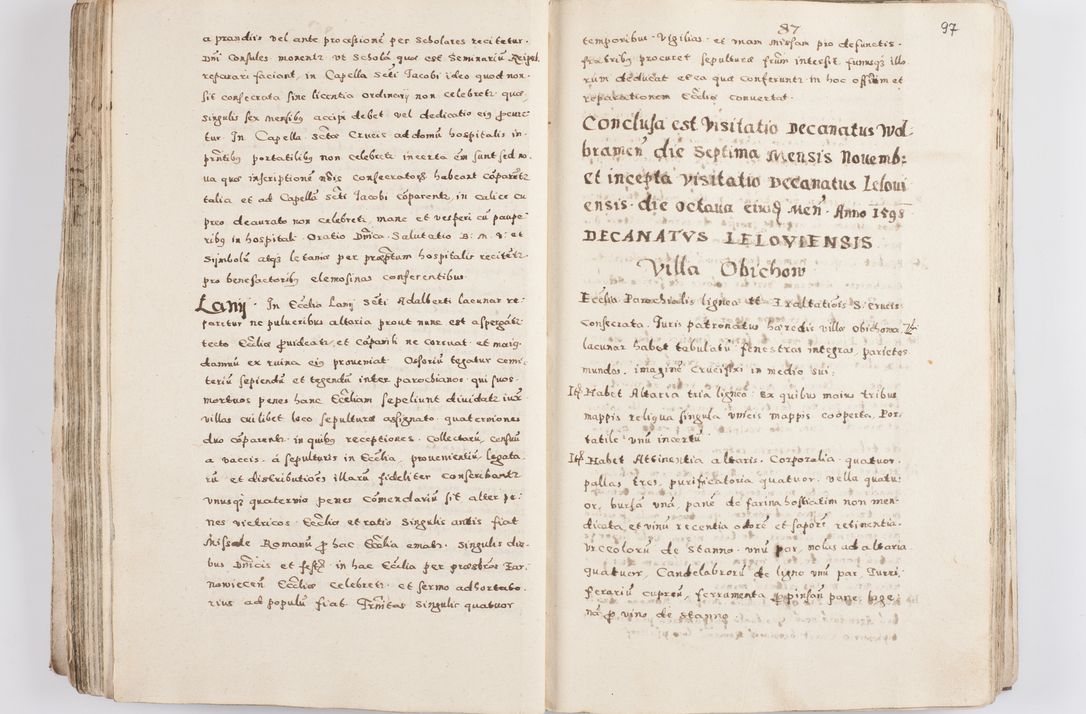 a prandiis vel ante processionē per Scholares recitetur.
Dnī Consules monentꝛ vt Scholā quae est Seminariū Reipub.
reparari faciant, in Capella Scti Jacobi ideo quod non
sit consecrata sine licentia ordinarij non celebretꝛ quae,
singulis sex mensibꝫ accipi debet vel dedicatio eiꝫ ꝓcure
tur. In Capella Sctae Crucis ad domū hospitalis in
portatilibꝫ non celebretꝛ incerta em̄ sunt sed no
ua quae inscriptionē nōis Consecratoris habeant cōparētꝛ
talia et ad Capellā Scti Jacobi cōparentꝛ, in calice cu
preo deaurato non celebretꝛ, mane et vesperi cū paupe
ribꝫ in hospitali Oratio Dnīca Salutatio B. M. V. et
Sijmbolū atqꝫ letania per praeceptam hospitalis recitetꝛ
pro benefactoribꝫ elemosinas conferentibus
Lanij. In Ecclīa Lanij Scti Adalberti lacunar re-
paretur ne pulueribus altaria prout nunc est aspergātꝛ
tecto Ecclīae ꝓuideatꝛ, et cōpanili ne corruat et maiꝫ
damnū ex ruina eiꝫ proueniat. Ossoriū tegatur cemi
teriū sepiendū et tegendū inter parochianos qui suos
mortuos penes hanc Eccliam sepeliunt diuidatꝛ iux
villas cuilibet loco sepulturae assignato quaterniones
duo cōparentꝛ in quibꝫ receptiones. Collectarū, censuū
a vaccis. á sepulturis in Ecclīa, prouenientiū legata
rū et distributiōes illarū fideliter Conscribantꝛ
vnusqꝫ quaternio penes Cōmendariū sit alter pe-
nes vietricos. Ecclīae et ratio Singulis annis fiat
Missale Romanū ꝓ hac Ecclīa ematꝛ. Singulis die
bus Dnīcis et festis in hac Ecclīa per praesbros Xar
nowiecen̄ Ecclīae celebretꝛ. et sermo adhortato
rius ad populū fiat Frnītas singulis quatuor
87
97
temporibus Vigilias et vnam missam pro defunctis.
fratribꝫ procuret sepulturae frūm intersit, funusqꝫ illo
rūm deducat et ea quae conferuntꝛ in hoc offm et
reparationem Ecclīae conuertat.
Conclusa est Visitatio Decanatus Wol
bramen̄ die Septima Mensis Nouemb:
et incepta visitatio Decanatus Leloui
ensis. die octaua eiusꝫ Men̄. Anno 1598
DECANATVS LELOVIENSIS
Villa Obichow
Ecclīsia Parochialis lignea tt Exaltatiōis S. crucis
Consecrata. Juris patronatus haeredis villae Obichoua.
lacunar habet tabulatū fenestras integras, parietes
mundos. imaginē Crucifixi in medio sui.
Itē Habet Altaria tria lignea. Ex quibus maius tribus
mappis reliqua singula vnicis mappis cooperta, Por
tatile vnū incertū
Itē Habet Attinentia altaris. Corporalia. quatuor.
pallas tres, purificatoria quatuor. vella quatu
or, bursā vnā, panē de farina hosticatim non men
dicata, et vinū recentia odorē et saporē retinentia.
vrceolorū de stanno. vnū par, nolas ad altaria
quatuor, Candelabrorū de ligno vnū par, Turri
ferariū cupreū, ferramenta ꝓ pinsan̄ pane, lage
nā ꝓ vino de stanno